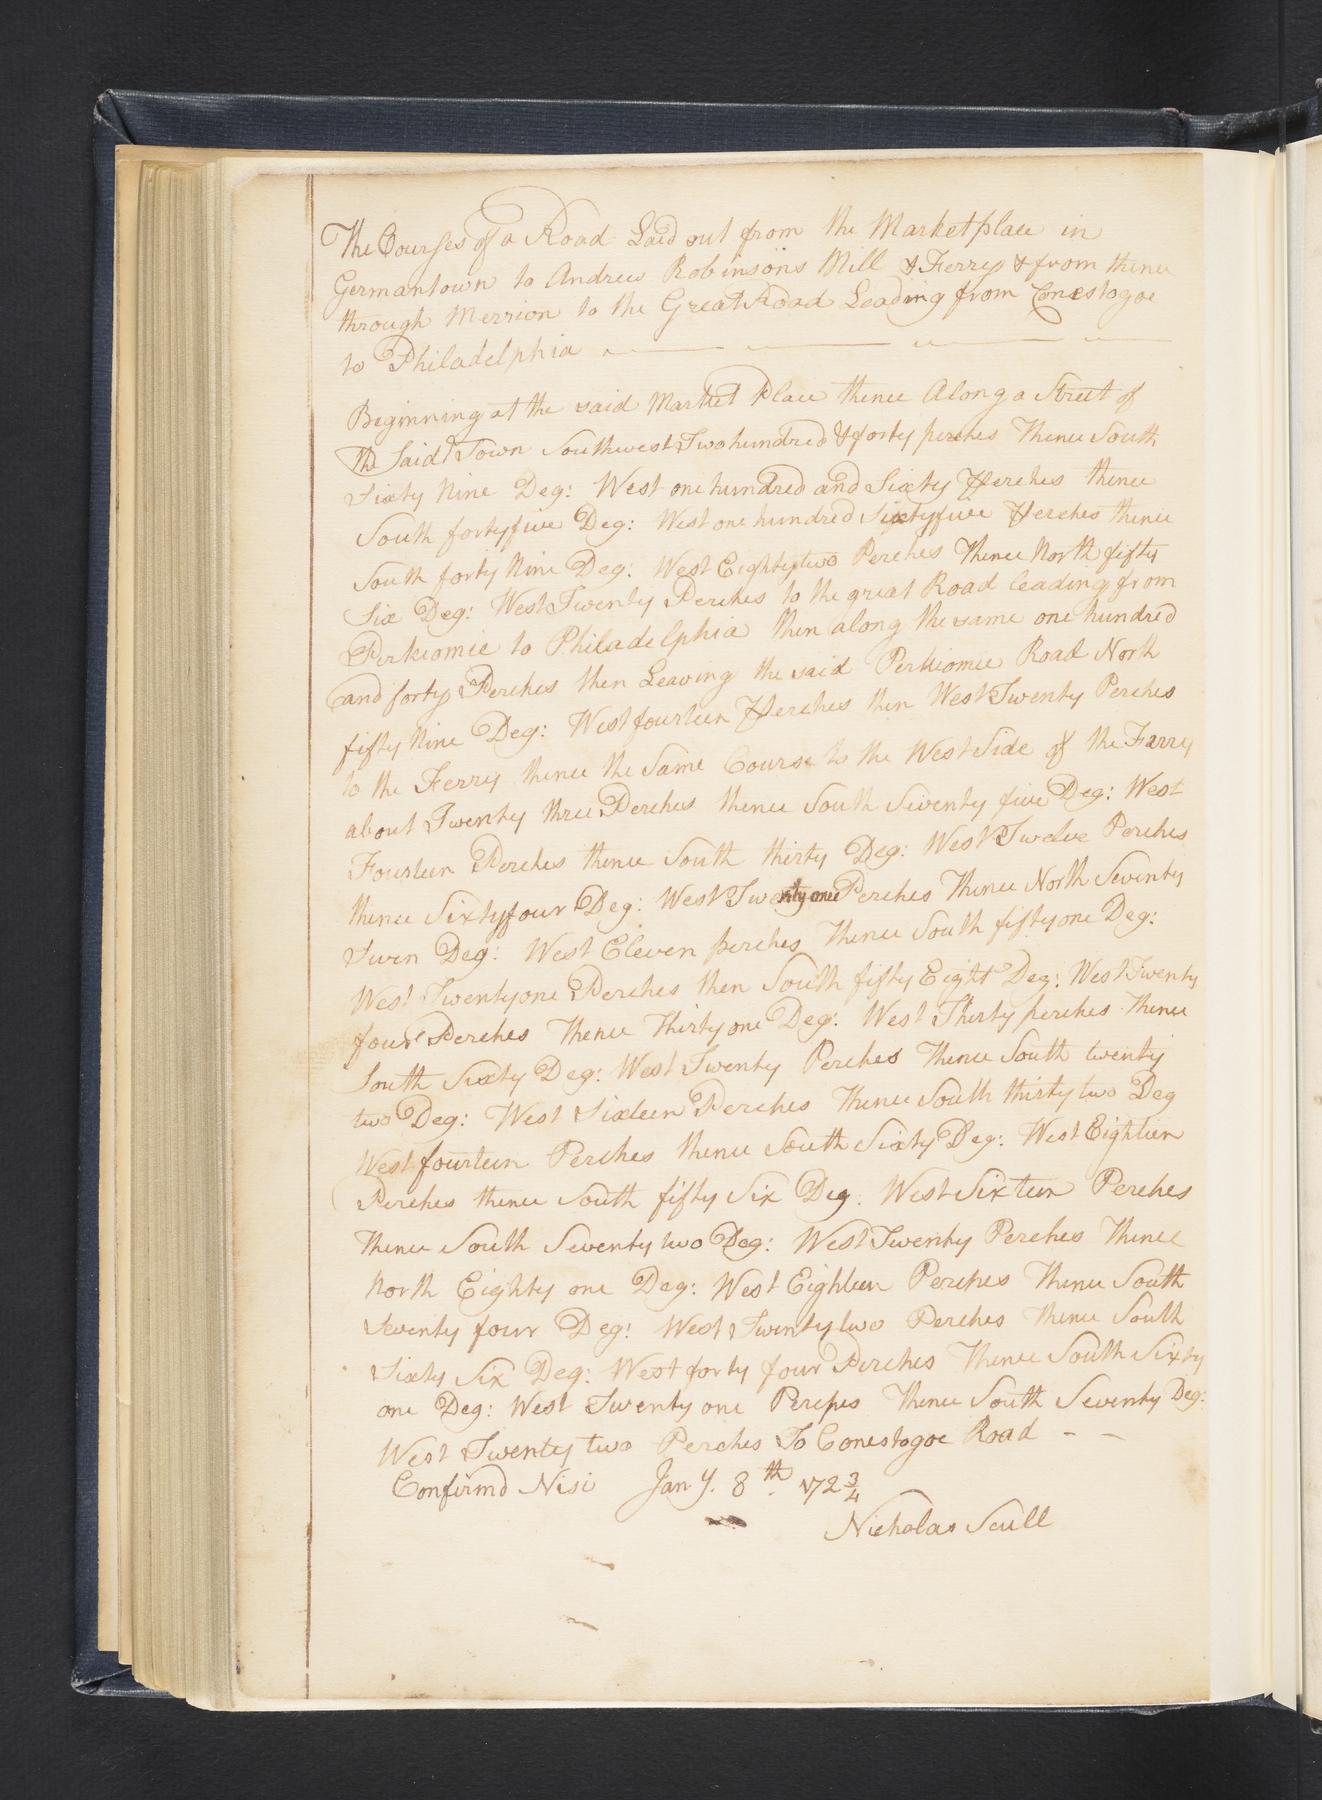 The Courses of a Road Laid out from the Marketplace in
Germantown to Andrew Robinsons Mill & Ferry & from thence
through Merrion to the Great Road Leading from Conestogoe
to Philadelphia
Beginning at the said Market Place thence Along a Street of
the Said Town Southwest Two hundred & forty perches Thence South
Sixty Nine Deg: West one hundred and Sixty Perches thence
South fortyfive Deg: West one hundred Sixtyfive Perches thence
South forty Nine Deg: West Eightytwo Perches Thence North fifty
Six Deg: West Twenty Perches to the great Road leading from
Perkiomie to Philadelphia then along the same one hundred
and forty Perches then Leaving the said Perkiomie Road North
fifty Nine Deg: West fourteen Perches then West Twenty Perches
to the Ferry thence the Same Course to the West Side of the Farry
about Twenty three Perches thence South Seventy five Deg: West
Fourteen Perches thence South thirty Deg: West Twelve Perches
thence Sixtyfour Deg: West Twentyone Perches Thence North Seventy
Seven Deg: West Eleven perches Thence South fiftyone Deg:
West Twentyone Perches then South fifty Eight Deg: West Twenty
four Perches Thence Thirtyone Deg: West Thirty perches Thence
South Sixty Deg: West Twenty Perches Thence South twenty
two Deg: West Sixteen Perches Thence South thirty two Deg
West fourteen Perches thence South Sixty Deg: West Eighteen
Perches thence South fifty Six Deg. West Sixteen Perches
Thence South Seventy two Deg: West Twenty Perches Thence
North Eighty one Deg: West Eighteen Perches Thence South
Seventy four Deg: West Twentytwo Perches Thence South
Sixty Six Deg: West forty four Perches Thence South Sixty
one Deg: West Twenty one Perches Thence South Seventy Deg:
West Twenty two Perches To Conestogoe Road - -
Confirmd Nisi Jany. 8th. 172 3/4
Nicholas Scull